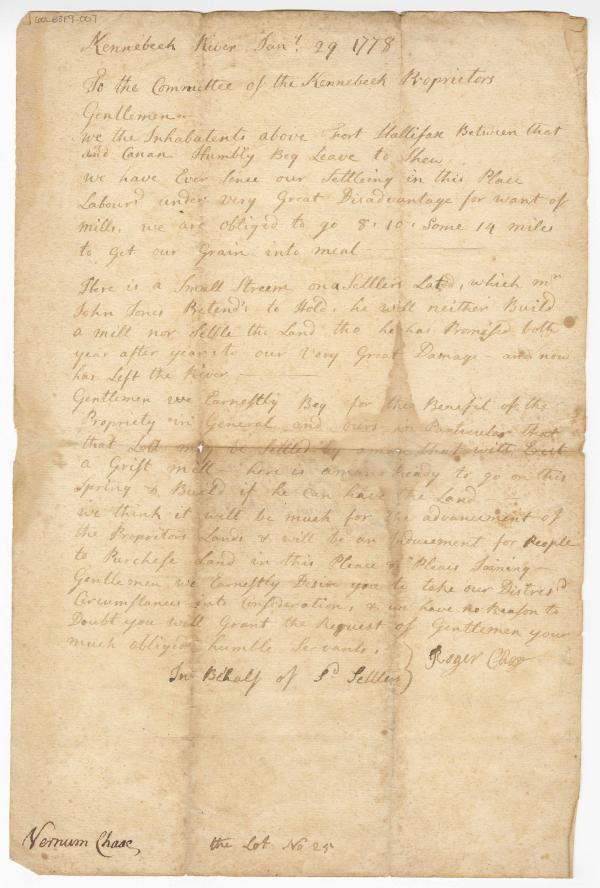 Kennebeck River Janr. 29 1778
To the Committee of the Kennebeck Proprietors
Gentlemen
we the Inhabatents above Fort Hallifax Between that
and Canan Humbly Beg Leave to Shew
we have Ever Sence our Settleing in this Place
Labourd under very Great Disadvantage for want of
mills, we are obliged to go 8, 10, Some 14 miles
to Get our Grain into meal
Here is a Small Streem on a Settlers Lot, which mr
John Jones Retends to Hold, he will neither Build
a mill nor Settle the Land tho he has Promised both
year after year, to our Very Great Damage and now
has Left the River
Gentlemen we Earnestly Beg for the Benefit of the
Propriety in General and ours in Particular that
that Lott may be Settled by a man that will Erect
a Grist mill – here is a man ready to go on this
Spring & Build if he can have the Land
we think it will be much for the advancement of
the Propritors Lands & will be an Inducement for People
to Purchese Land in this Pleace & Pleaces Joining –
Gentlemen we Earnestly Desire you to take our Distresd
Circumstances into Consideration, & we have no Reason to
Doubt you will Grant the Request of Gentlemen your
much obliged humble Servants,
Roger Chase
In Behalf of Sd Settlers
Vernum Chase,
the Lot No 25